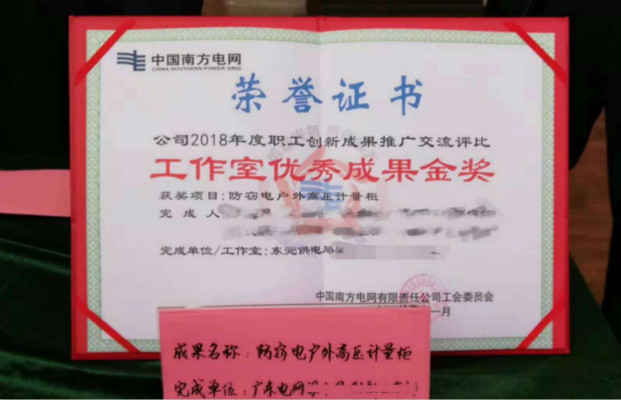 中国南方电网
CHINA SOUTHERN POWER GRID
荣誉证书
公司2018年度职工创新成果推广交流评比
工作室优秀成果金奖
获奖项目:防窃电户外高压计量柜
完成人
完成单位/工作室:东莞供电局
中国南方电网有限责任公司工会委员会
一月
成果名称:防窃电户外高压计量柜
完成单位:广东电网